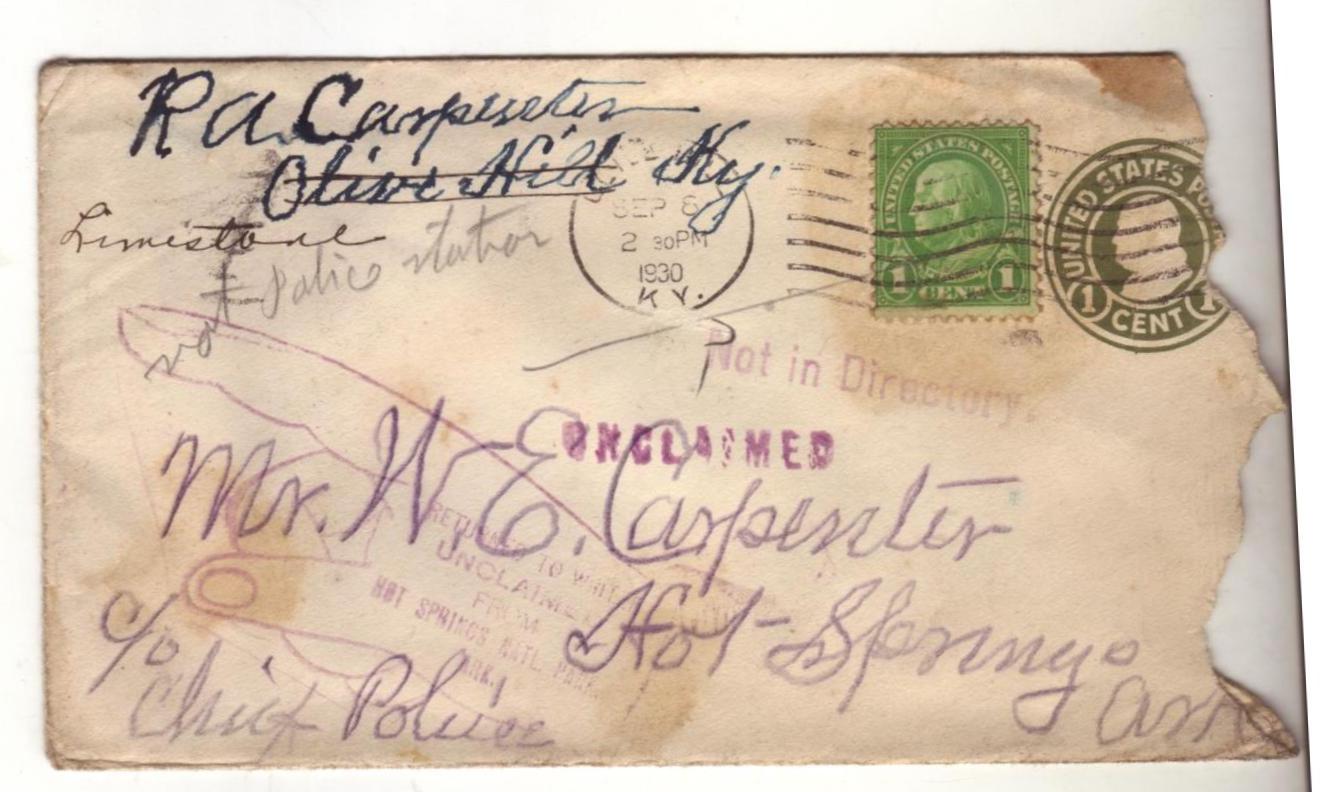 R A Carpenter
Olive Hill Ky.
Limestone
not Police station
SEP 8
2 30PM
1930
KY.
UNITED STATES POSTAGE
1 CENT 1
UNITED STATES
1 CENT 1
Not in Directory.
UNCLAIMED
Mr. W. E. Carpenter
Hot Springs
Ark
c/o
Chief Police
RETURNED TO WRITER
UNCLAIMED
FROM
HOT SPRINGS NATL. PARK,
ARK.